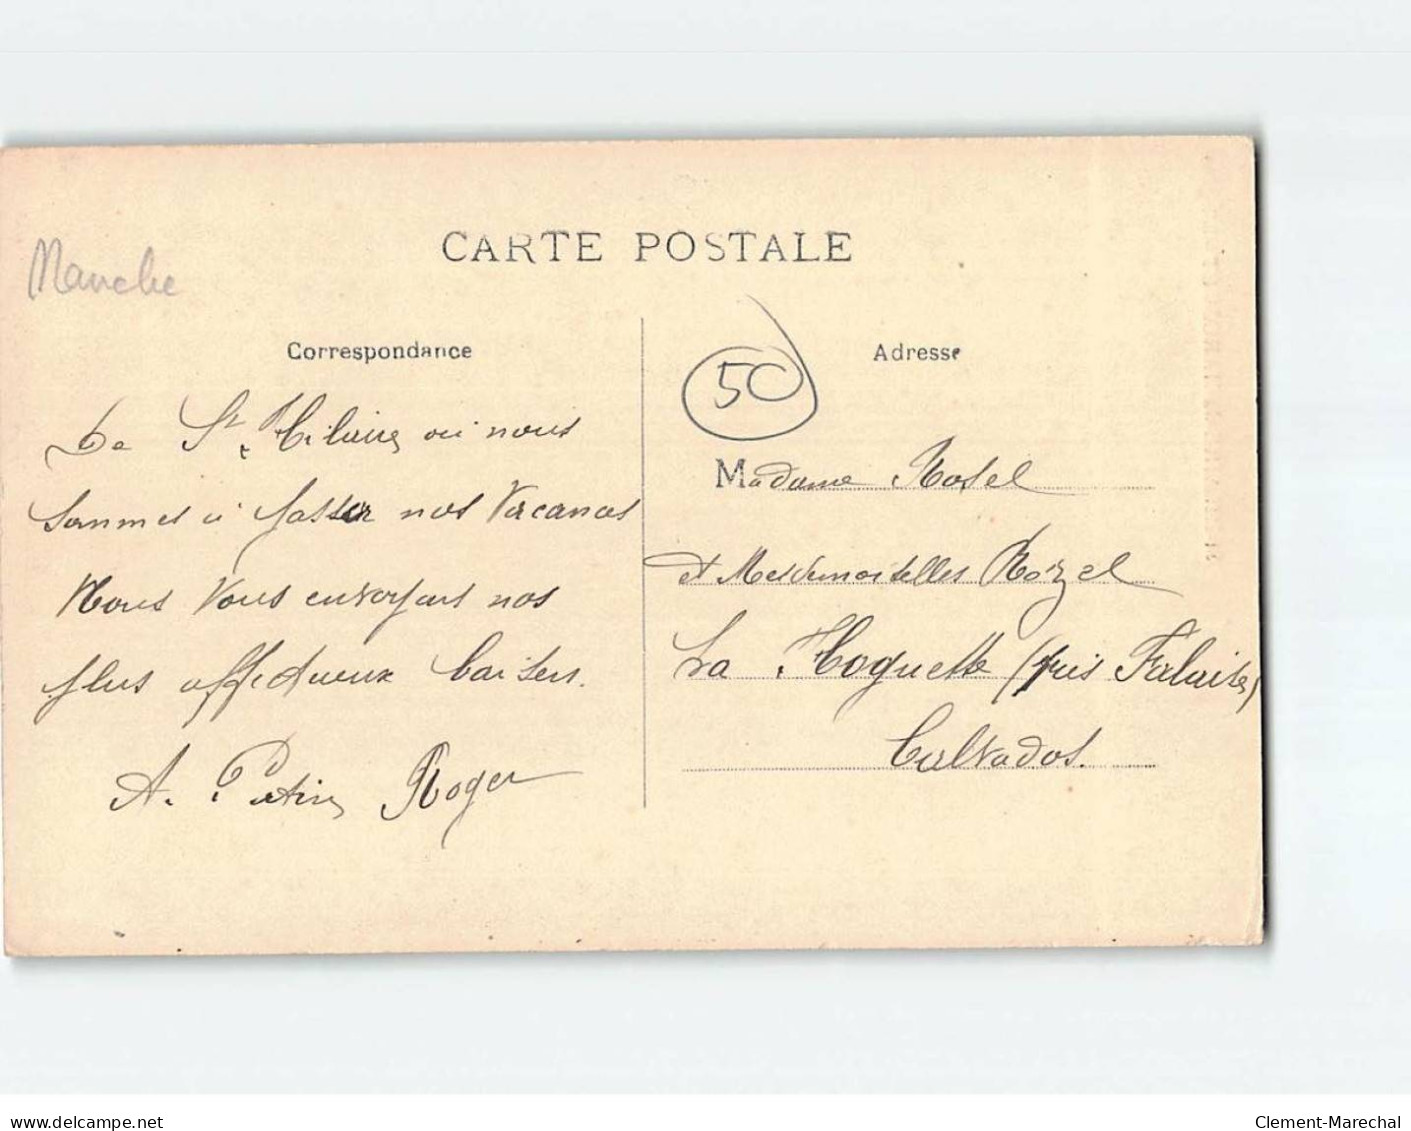 CARTE POSTALE
Manche
Correspondance
De St. Hilaire, où nous
sommes à passer nos Vacances
Nous Vous envoyons nos
plus affectueux baisers.
A. Roger
50
Adresse
Madame Rosel
et Mesdemoiselles Rózel
La Hoguette (près Falaise)
Calvados.
delcampe.net
Clement-Marechal